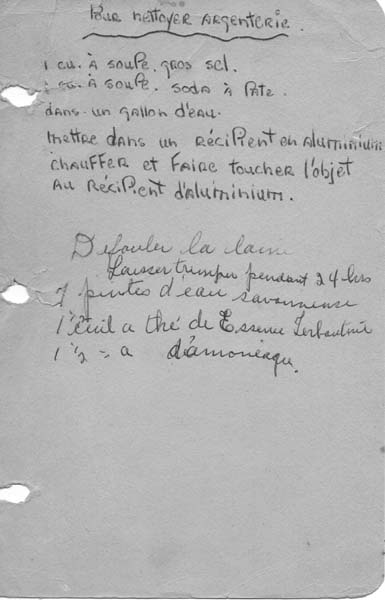 Pour nettoyer argenterie.
1 cu. à soupe. gros sel.
1 cu. à soupe. soda à pâte.
dans un gallon d'eau.
mettre dans un récipient en aluminium
chauffer et faire toucher l'objet
au récipient d'aluminium.
Defouler la laine
Laisser trimper pendant 24 hrs
7 pintes d'eau savonneuse
1 cuil a thé de Essence
1 1/2 " a d'amoniaque.